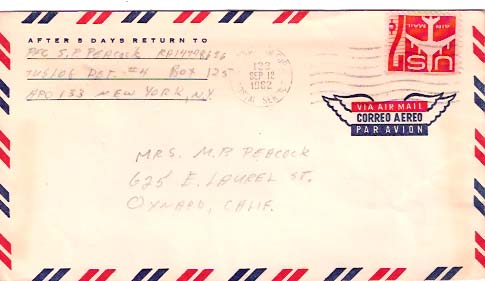 AFTER 5 DAYS RETURN TO
PFC S.P PEACOCK RA14778656
TUSLOG DET. #4 BOX 125
APO 133 NEW YORK, N.Y.
133
SEP 12
1962
AIR MAIL
7¢
US
VIA AIR MAIL
CORREO AEREO
PAR AVION
MRS. M.P. PEACOCK
625 E. LAUREL ST.
OXNARD, CALIF.